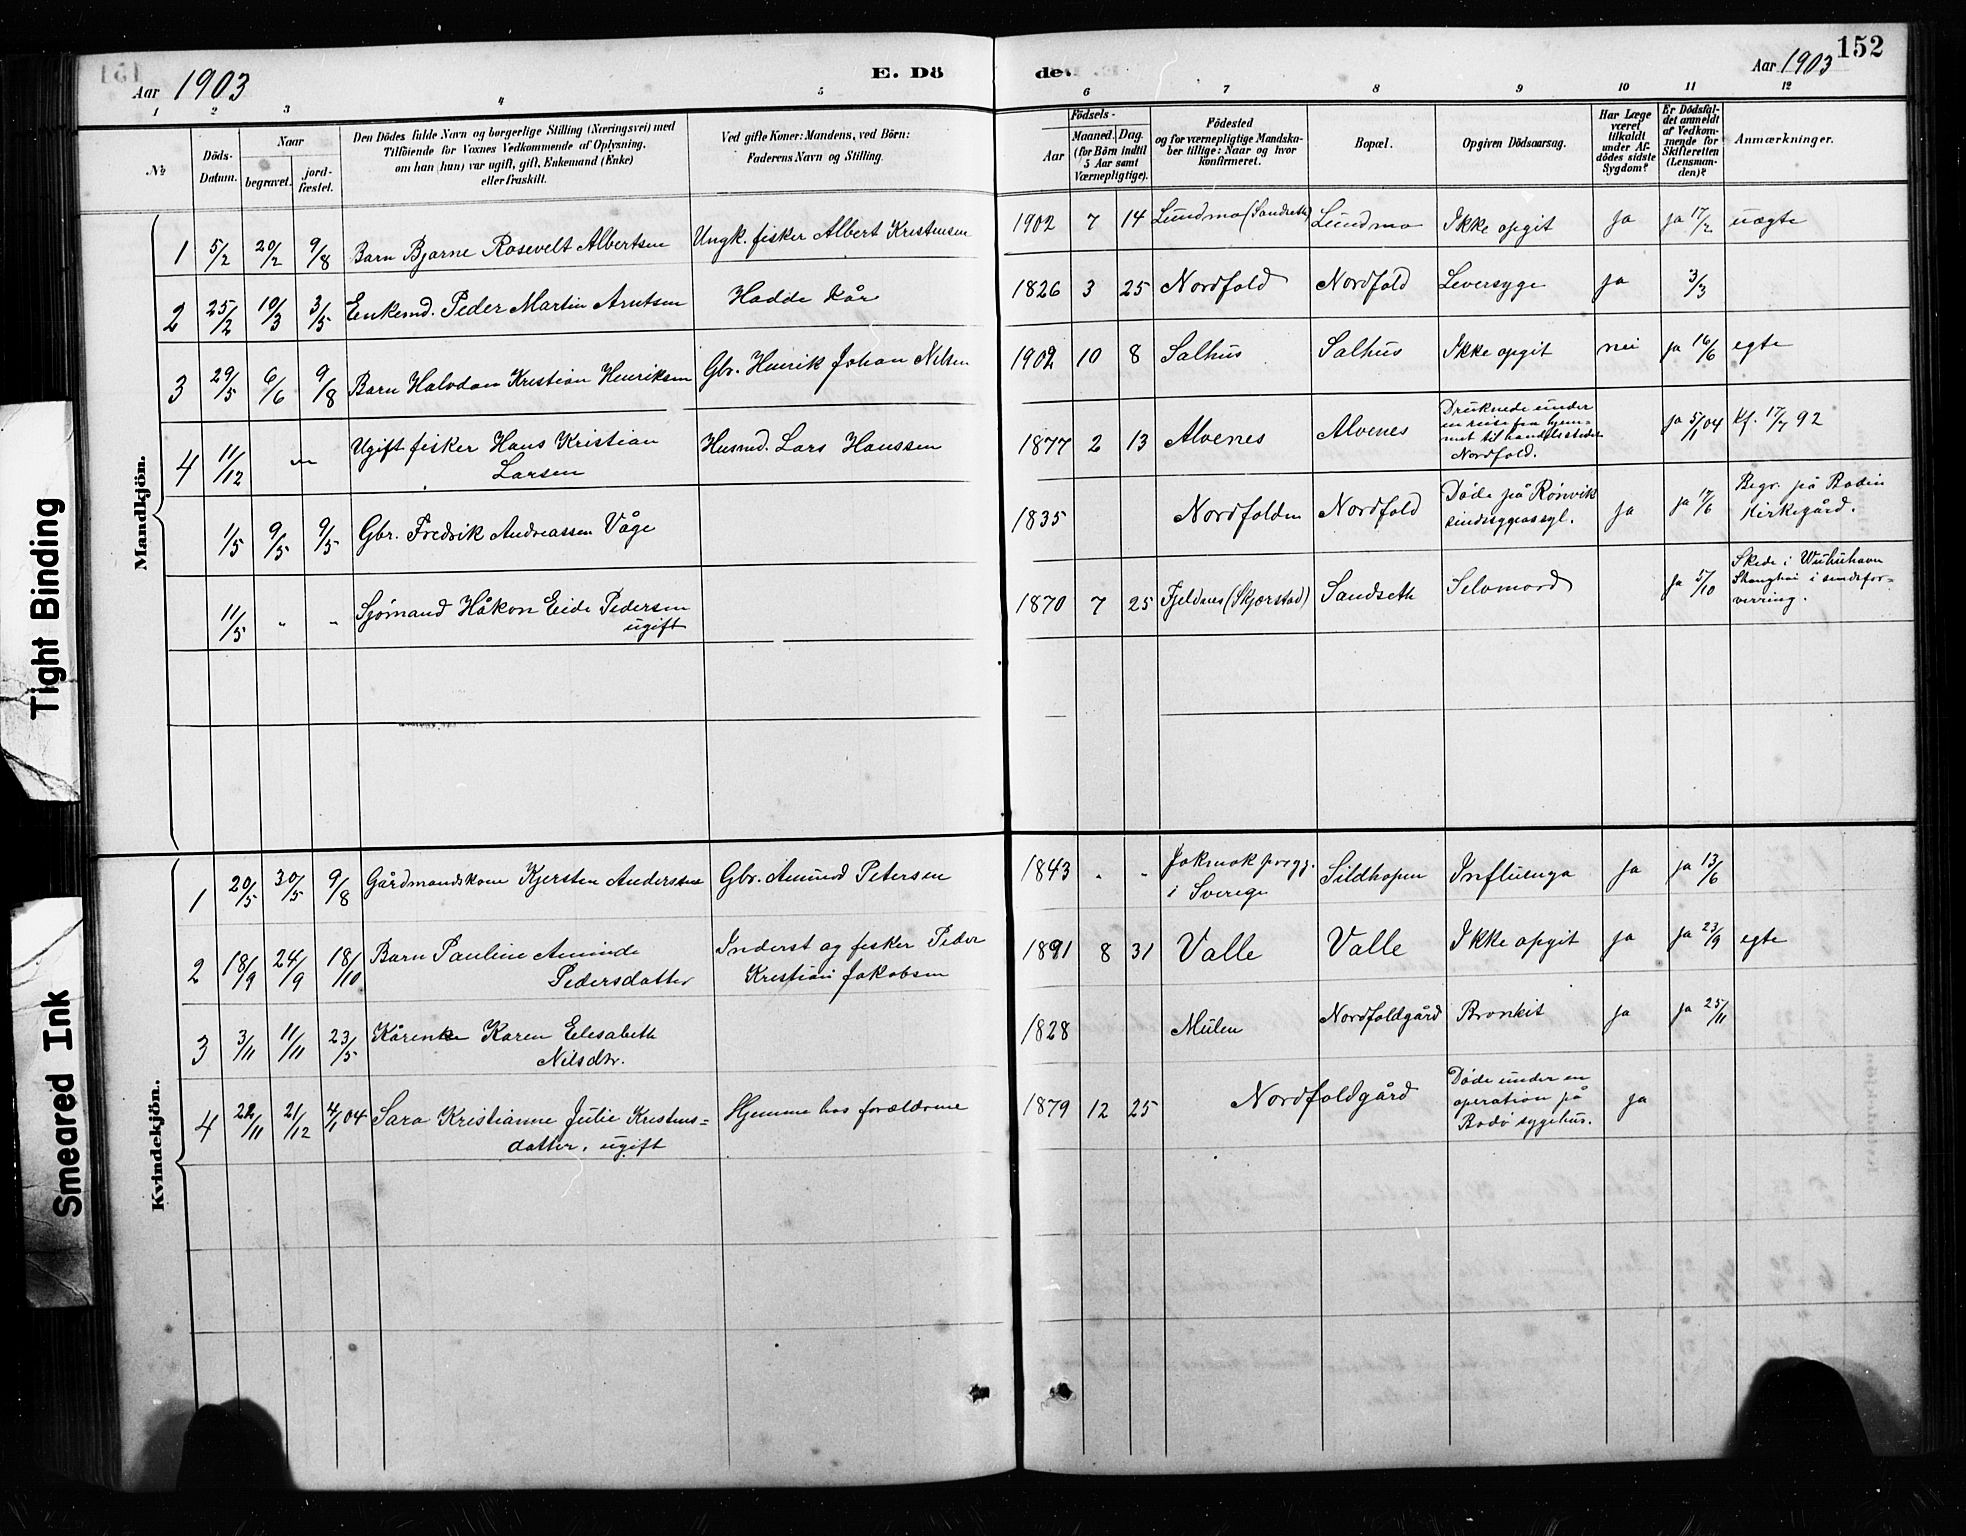 152
Aar 1903
E. Dö
de.
Aar 1903
1 2 3 4 5 6 7 8 9 10 11 12
№
Döds-Datum.
Naar
begravet.
jord-fæstet.
Den Dödes fulde Navn og borgerlige Stilling (Næringsvei) med
Tilföiende for Voxnes Vedkommende af Oplysning,
om han (hun) var ugift, gift, Enkemand (Enke)
eller fraskilt.
Ved gifte Koner: Mandens, ved Börn:
Faderens Navn og Stilling.
Födsels-
Aar
Maaned. Dag.
(for Børn indtil
5 Aar samt
Værnepligtige).
Födested
og for værnepligtige Mandska-
ber tillige: Naar og hvor
konfirmeret.
Bopæl.
Opgiven Dödsaarsag.
Har Læge
været
tilkaldt
under Af-
dödes sidste
Sygdom?
Er Dödsfal-
det anmeldt
af Vedkom-
mende for
Skifteretten
(Lensman-
den)?
Anmærkninger.
Mandkjön.
1 5/2 20/2 9/8 Barn Bjarne Rosevelt Albertsen Ungk. fisker Albert Kristensen 1902 7 14 Lundmo (Sandseth) Lundmo Ikke opgit ja ja 17/2 uægte
2 25/2 10/3 3/5 Enkemd. Peder Martin Arntsen Hadde kår 1826 3 25 Nordfold Nordfold Leversyge ja 3/3
3 29/5 6/6 9/8 Barn Halvdan Kristian Henriksen Gbr. Henrik Johan Nilsen 1902 10 8 Salhus Salhus Ikke opgit nei ja 16/6 egte
4 11/12 Ugift fisker Hans Kristian
Larsen
Husmd. Lars Hanssen 1877 2 13 Alvenes Alvenes
Druknede under
en reise fra hjem-
met til handelsstedet
Nordfold.
ja 5/1 04 Kf. 17/7 92
1/5 9/5 9/5 Gbr. Fredrik Andreassen Våge 1835 Nordfolden Nordfold
Döde på Rønvik
sindssygeassyl.
ja ja 17/6
Begr. på Bodin
Kirkegård.
11/5 " " Sjømand Håkon Eide Pedersen
ugift
1870 7 25 Fjeldnes (Skjærstad) Sandseth Selvmord ja 5/10
Skede i Wuhuhavn
Shanghai i sindsfor-
virring.
Kvindekjön.
1 20/5 30/5 9/8 Gårdmandskone Kjersten Andersen Gbr. Amund Petersen 1843 " "
Jokmok prgj.
i Sverige
Sildhopen Influenza ja ja 13/6
2 18/9 24/9 18/10 Barn Pauline Aminde
Pedersdatter
Inderst og fisker Peder
Kristian Jakobsen
1891 8 31 Valle Valle Ikke opgit ja ja 23/9 egte
3 3/11 11/11 23/5 Kårenke Karen Elesabeth
Nilsdtr.
1828 Mulen Nordfoldgård Bronkit ja ja 25/11
4 22/11 21/12 4/1 04 Sara Kristianne Julie Kristens=
datter, ugift
Hjemme hos forældrene 1879 12 25 Nordfoldgård
Døde under en
operation på
Bodø sygehus.
ja
Tight Binding
Smeared Ink